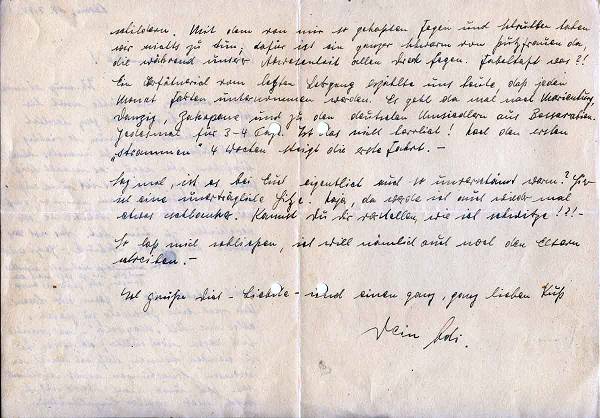 schildern. Mit dem von mir so gehaßten Fegen und Schrubben haben
wir nichts zu tun; dafür ist ein ganzer Schwarm von Putzfrauen da,
die während unser Abwesenheit allen Dreck fegen. Fabelhaft was?!
Ein vom letzten Lehrgang erzählte uns heute, daß jeden
Monat Fahrten unternommen werden. Es geht da mal nach Marienburg,
Danzig, Zakopane und zu den deutschen Umsiedlern aus Bessarabien.
Jedesmal für 3-4 Tage. Ist das nicht herrlich! Nach den ersten
"strammen" 4 Wochen steigt die erste Fahrt. –
Sag mal, ist es bei Euch eigentlich auch so unverschämt warm? Hier
ist eine unerträgliche Hitze. Naja, da werde ich auch wieder mal
etwas schlanker. Kannst Du Dir vorstellen, wie ich schwitze!?! –
So laß mich schließen, ich will nämlich auch noch den Eltern
schreiben. –
Ich grüße Dich – Liebste – und einen ganz, ganz lieben Kuß
Dein Adi.